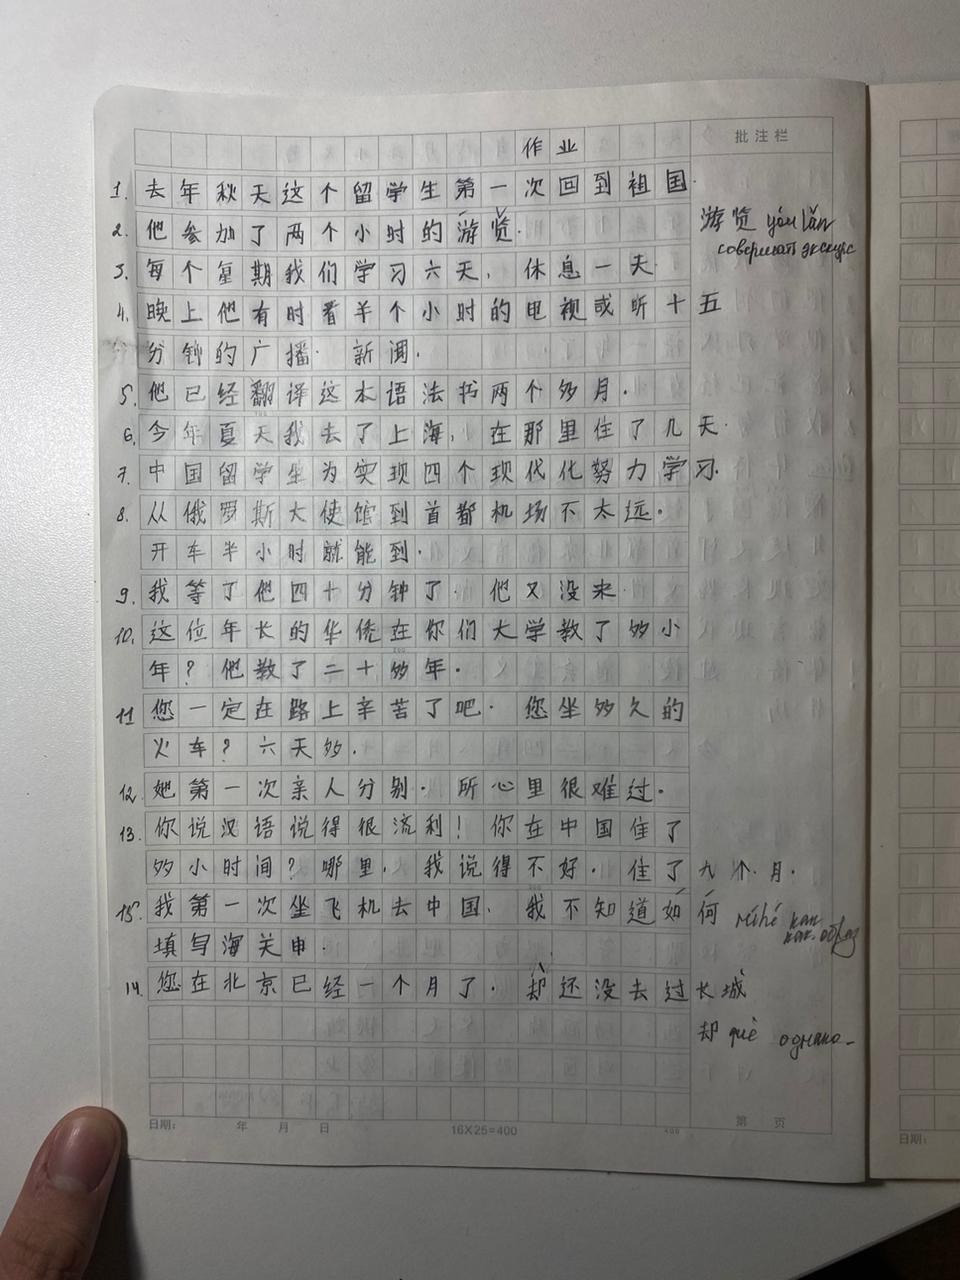 作业
批注栏
1. 去年秋天这个留学生第一次回到祖国.
2. 他参加了两个小时的游览.
游览 yóu lǎn
совершать экскурс
3. 每个星期我们学习六天, 休息一天.
4. 晚上他有时看半个小时的电视或听十五
分钟的广播. 新闻.
5. 他已经翻译这本语法书两个多月.
6. 今年夏天我去了上海, 在那里住了几天.
7. 中国留学生为实现四个现代化努力学习.
8. 从俄罗斯大使馆到首都机场不太远.
开车半小时就能到.
9. 我等了他四十分钟了. 他又没来.
10. 这位年长的华侨在你们大学教了多少
年? 他教了二十多年.
11 您一定在路上辛苦了吧. 您坐多久的
火车? 六天多.
12. 她第一次亲人分别. 所心里很难过.
13. 你说汉语说得很流利! 你在中国住了
多小时间? 哪里, 我说得不好. 住了九个月.
15. 我第一次坐飞机去中国, 我不知道如何
rúhé как
填写海关申.
14. 您在北京已经一个月了. 却还没去过长城
却 què однако
日期: 年 月 日
16X25=400
第 页
日期: